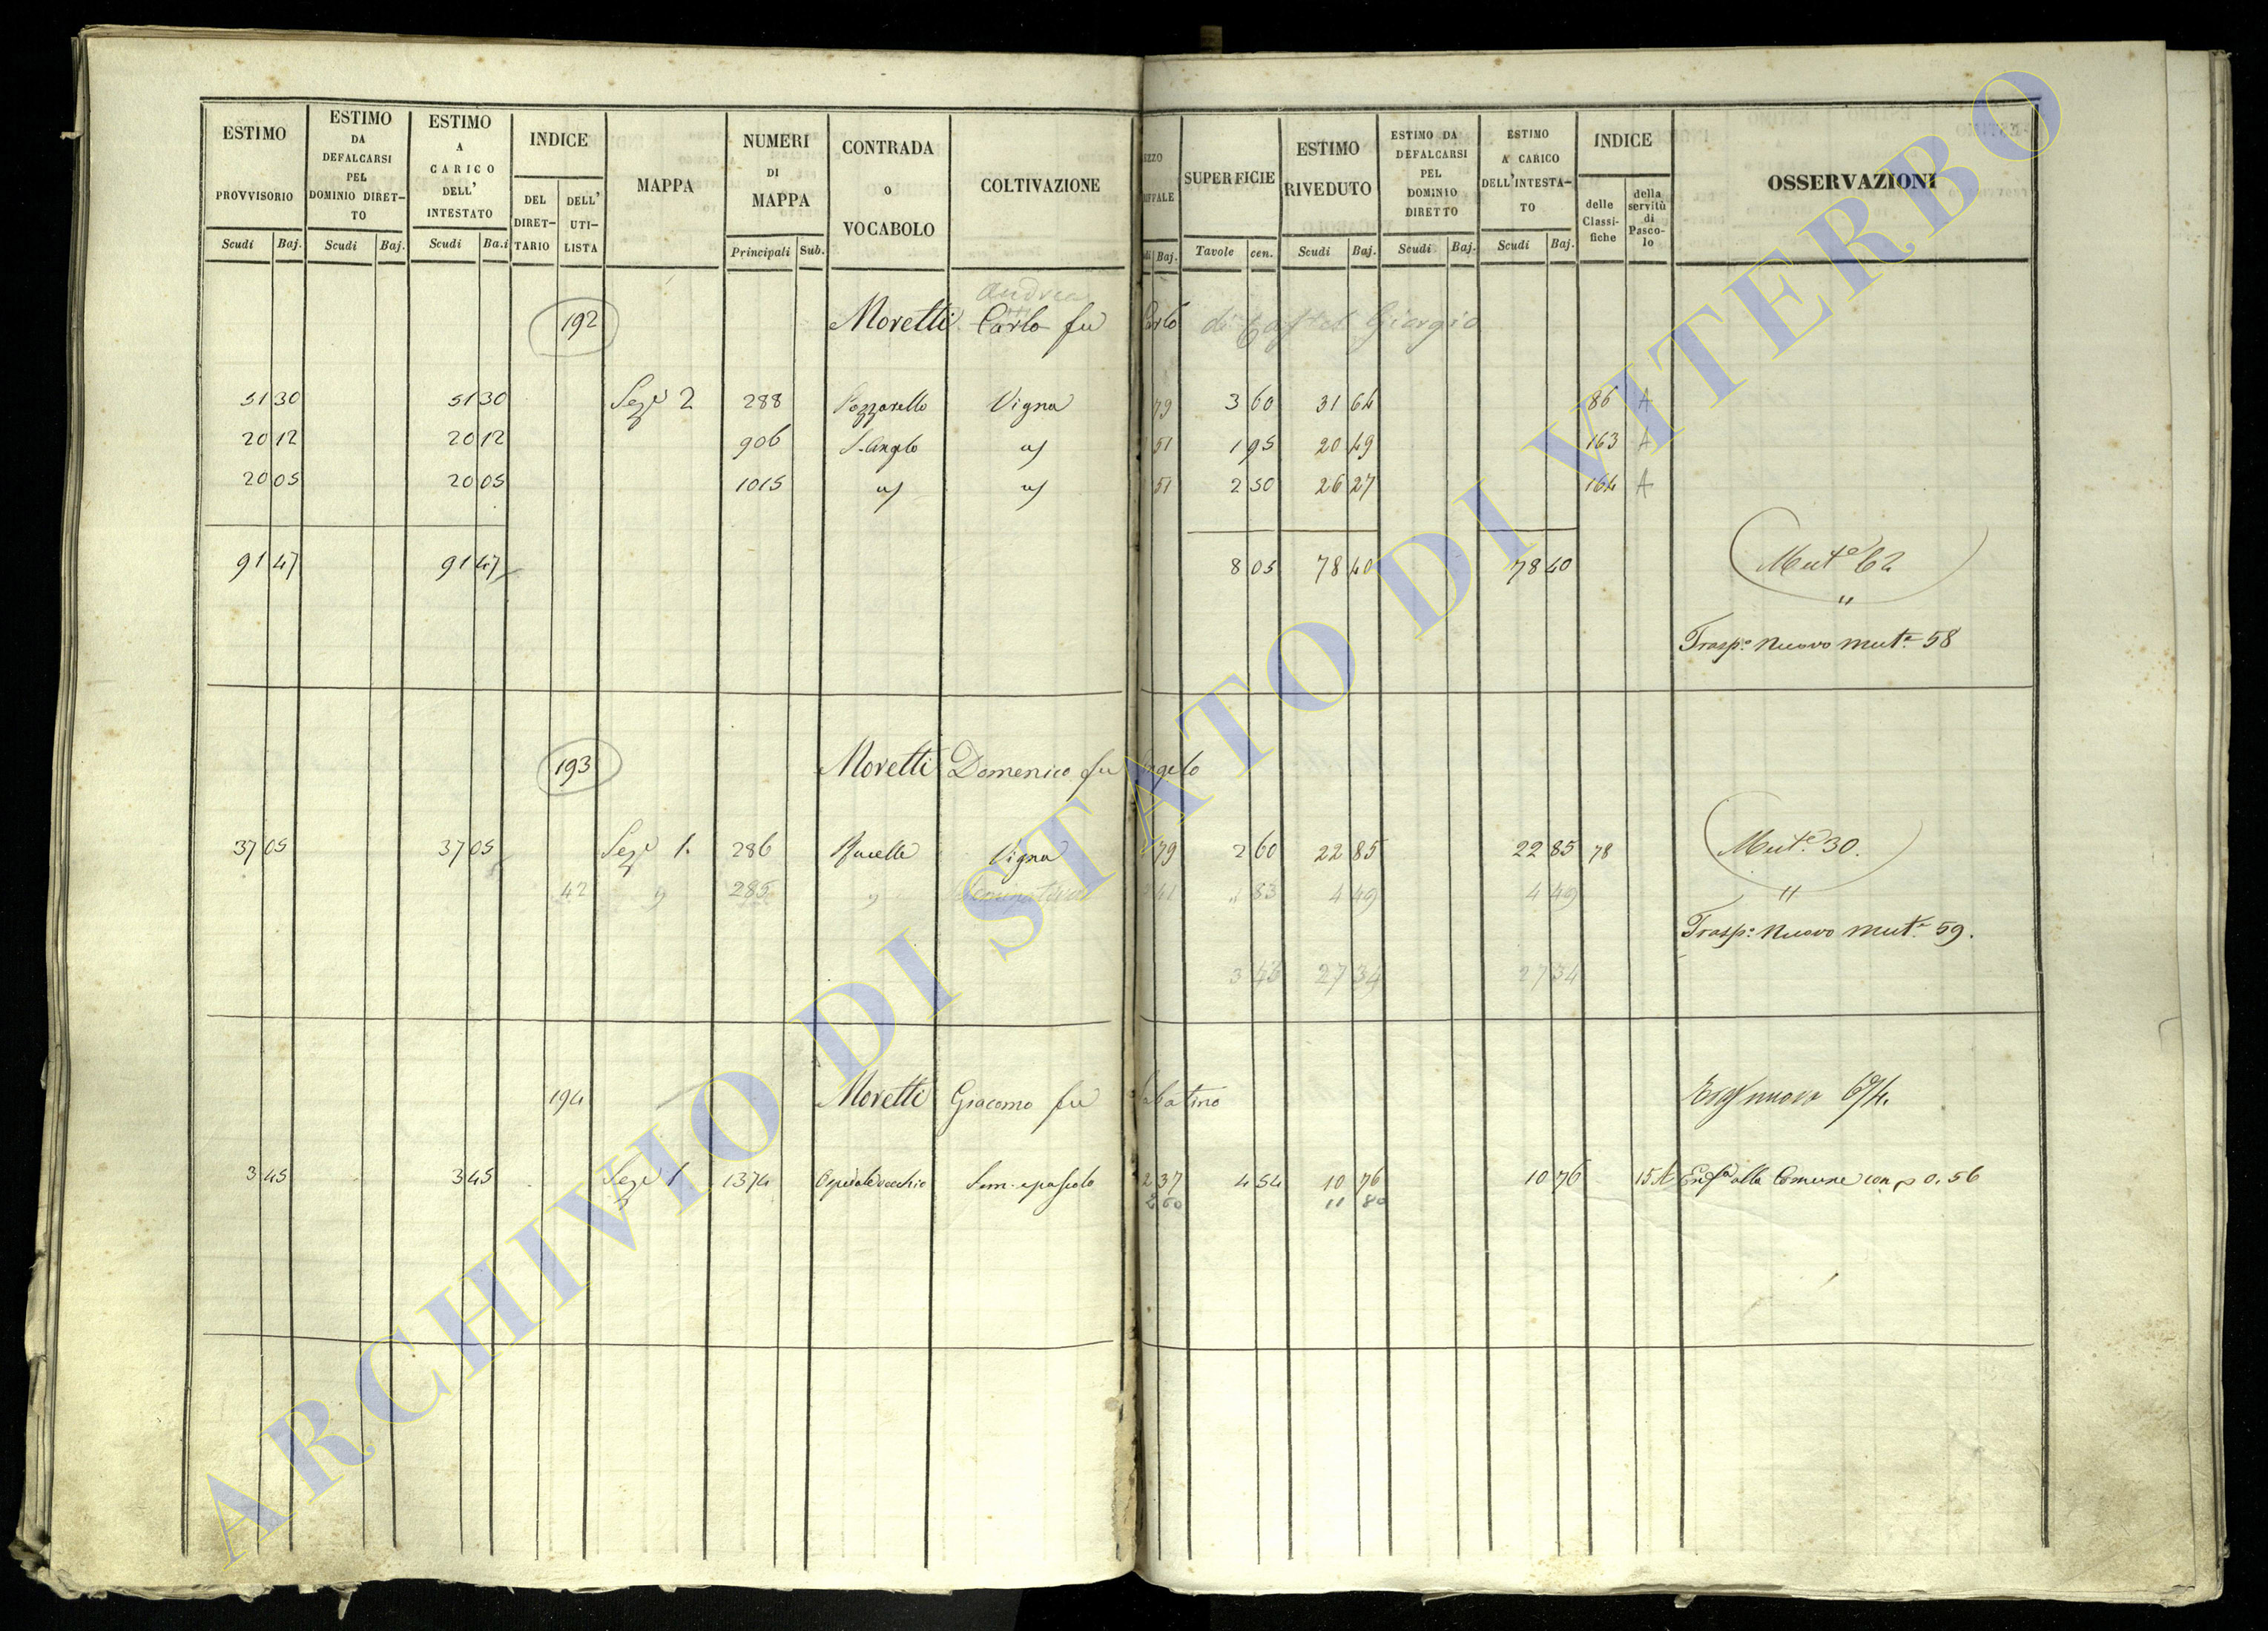 ESTIMO PROVVISORIO Scudi Baj.
ESTIMO DA DEFALCARSI PEL DOMINIO DIRET-TO Scudi Baj.
ESTIMO A CARICO DELL' INTESTATO Scudi Ba.i
INDICE DEL DIRET-TARIO DELL' UTI-LISTA
MAPPA
NUMERI DI MAPPA Principali Sub.
CONTRADA o VOCABOLO
COLTIVAZIONE
EZZO IFFALE di Baj.
SUPERFICIE Tavole cen.
ESTIMO RIVEDUTO Scudi Baj.
ESTIMO DA DEFALCARSI PEL DOMINIO DIRETTO Scudi Baj.
ESTIMO A CARICO DELL'INTESTA-TO Scudi Baj.
INDICE delle Classi-fiche della servitù di Pasco-lo
OSSERVAZIONI
Andrea
192 Moretti Carlo fu Carlo di Castel Giorgio
51 30 51 30 Seze 2 288 Pozzarello Vigna 79 3 60 31 64 86 A
20 12 20 12 906 S. Angelo 51 1 95 20 49 163 A
20 05 20 05 1015 51 2 50 26 27 164 A
91 47 91 47 8 05 78 40 78 40 Mute 62
"
Trasp: Nuovo mut. 58
193 Moretti Domenico fu Angelo
37 05 37 05 Seze 1. 286 Rucelle Vigna 79 2 60 22 85 22 85 78 Mute 30.
42 " 285 " 41 " 83 4 49 4 49 "
Trasp: Nuovo mut. 59.
3 43 27 34 27 34
194 Moretti Giacomo fu Sabatino nuova 694.
3 45 3 45 Seze 1 1374 Ospedale vecchio Sem. e pascolo 2 37 4 54 10 76 10 76 15 A Enfa alla Comune con 0.56
2 60 11 80
ARCHIVIO DI STATO DI VITERBO